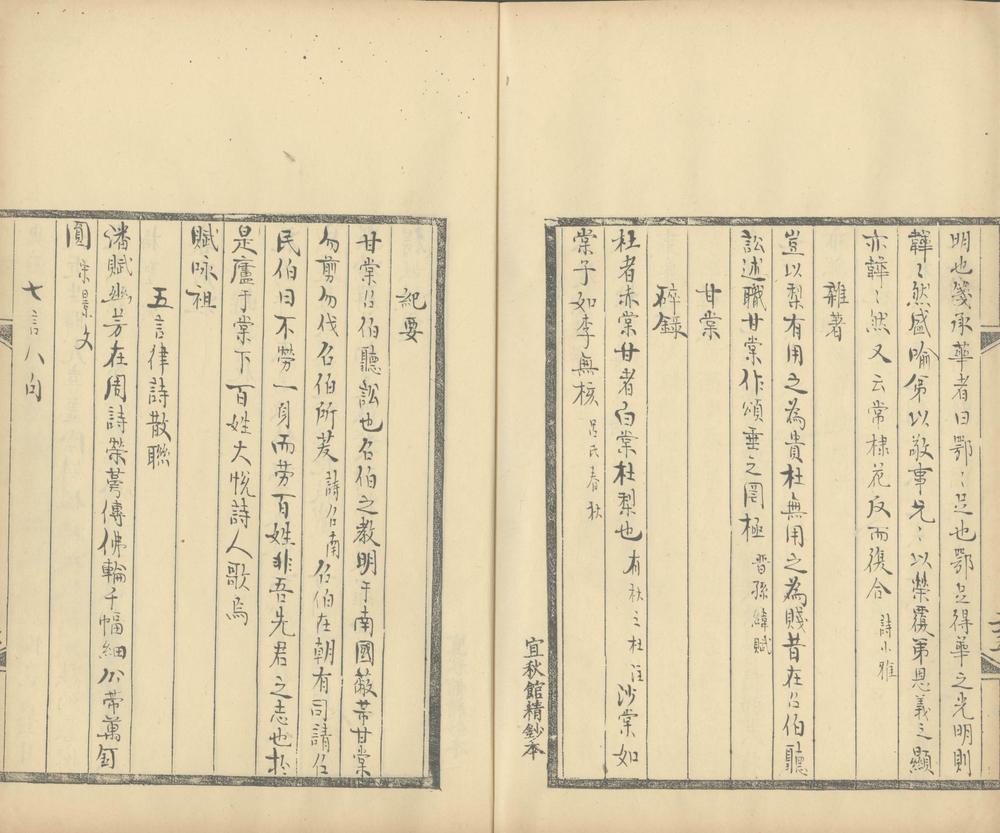 明也箋承華者曰鄂〻足也鄂足得華之光明則
韡〻然盛喻弟以敬事兄〻以榮覆弟恩義之顯
亦韡〻然又云常棣花反而後合 詩小雅
雜著
豈以梨有用之為貴杜無用之為賤昔在召伯聽
訟述職甘棠作頌垂之罔極 晋孫緯賦
甘棠
碎錄
杜者赤棠甘者白棠杜梨也 有杕之杜注 沙棠如
棠子如李無核 呂氏春秋
宜秋館精鈔本
紀要
甘棠召伯聽訟也召伯之教明于南國蔽芾甘棠
勿剪勿伐召伯所茇 詩召南 召伯在朝有司請召
民伯曰不勞一身而勞百姓非吾先君之志也於
是廬于棠下百姓大悅詩人歌焉
賦咏祖
五言律詩散聯
潘賦幽芳在周詩榮萼傳佛輪千幅細公帶萬釘
圓 宋景文
七言八句